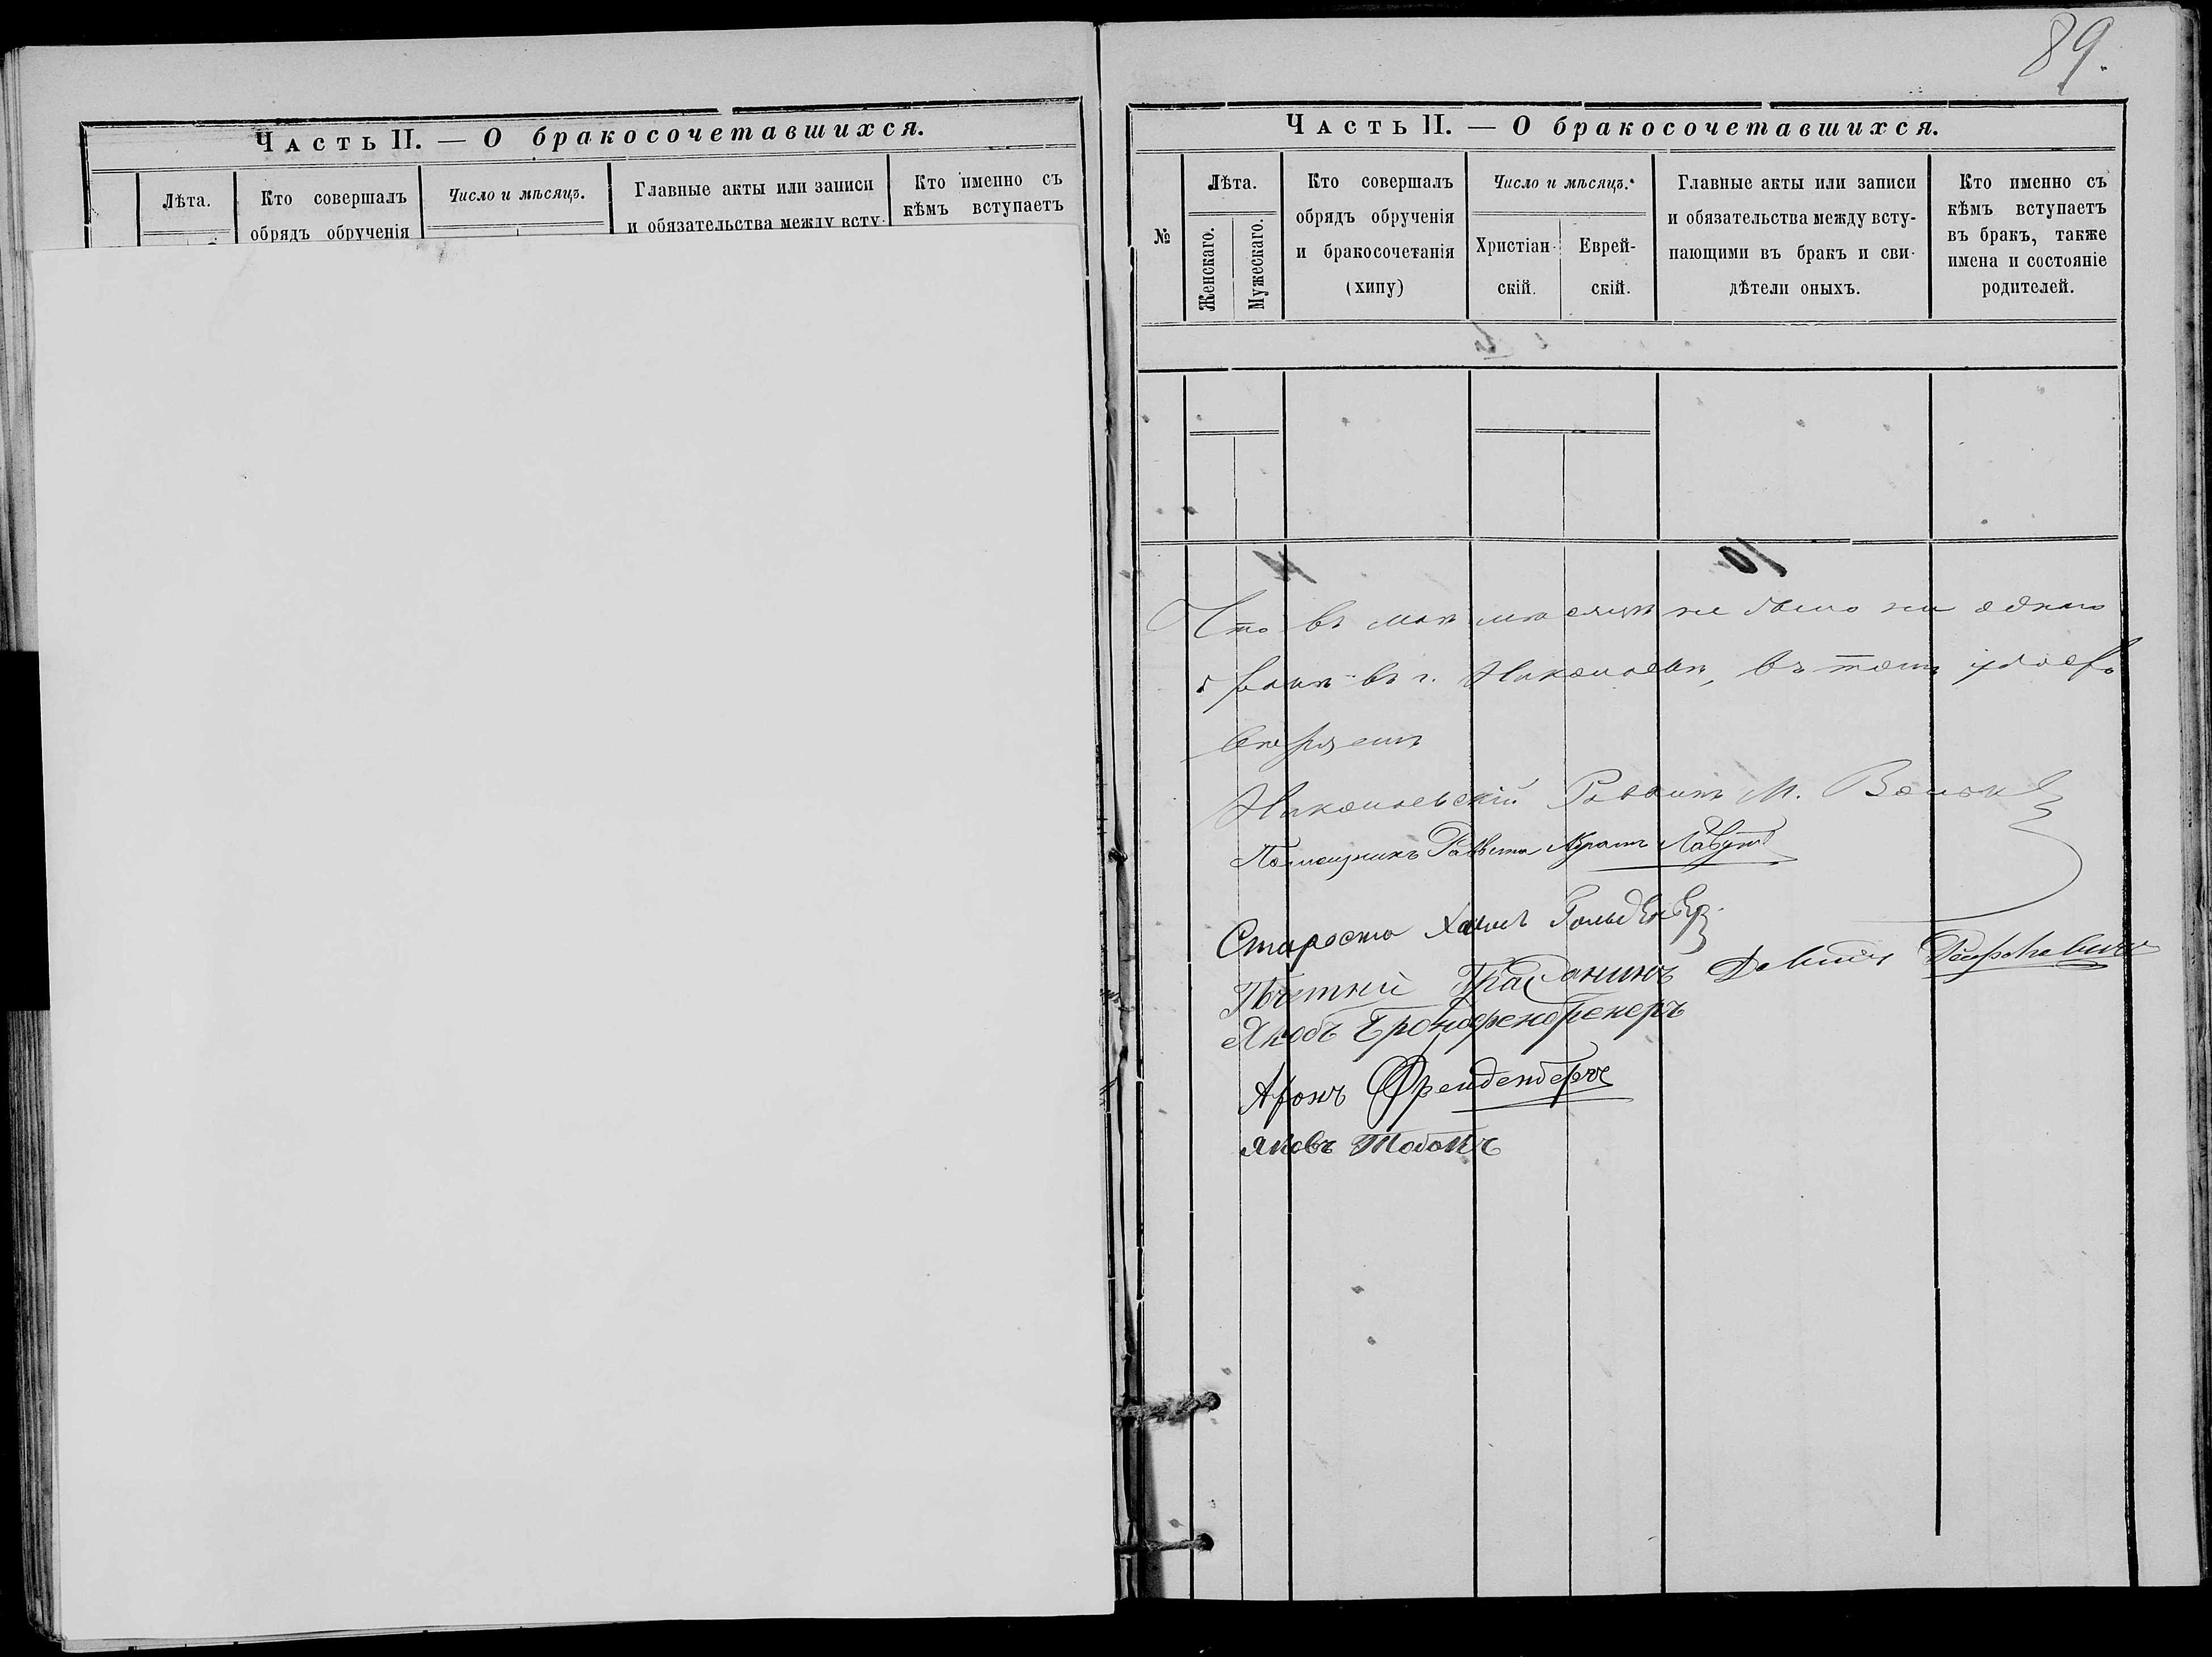 Часть II. — О бракосочетавшихся.
Лѣта.
Кто совершалъ
обрядъ обрученія
Число и мѣсяцъ.
Главные акты или записи
и обязательства между всту-
Кто именно съ
кѣмъ вступаетъ
89.
Часть II. — О бракосочетавшихся.
№
Лѣта.
Женскаго.
Мужескаго.
Кто совершалъ
обрядъ обрученія
и бракосочетанія
(хипу)
Число и мѣсяцъ.
Христіан-
скій.
Еврей-
скій.
Главные акты или записи
и обязательства между всту-
пающими въ бракъ и сви-
дѣтели оныхъ.
Кто именно съ
кѣмъ вступаетъ
въ бракъ, также
имена и состояніе
родителей.
Что въ маѣ мѣсяцѣ не было ни одного
брака въ г. Николаевѣ, въ томъ удосто
вѣряемъ
Николаевскій Раввинъ М.
Помощникъ Раввина Абрамъ
Староста Хаимъ
Гражданинъ Давидъ Рафаловичъ
Якобъ
Аронъ Фрейденбергъ
Яковъ